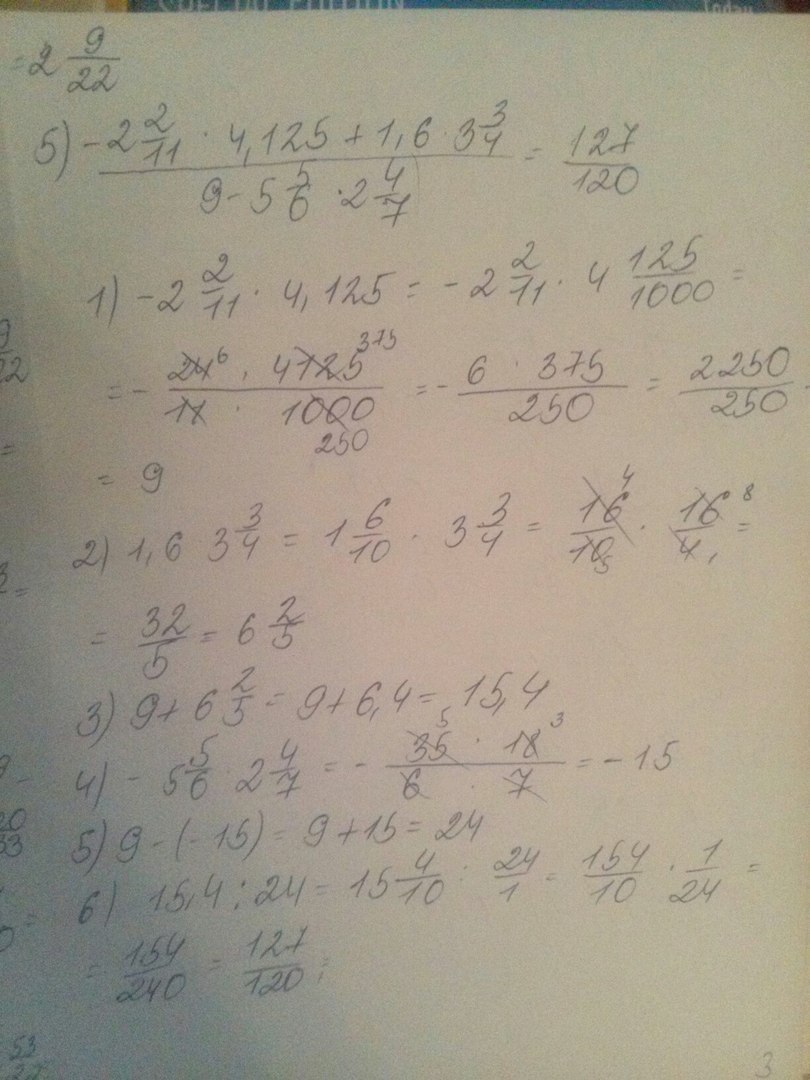 SPECIAL EDITION Today
= 2 9/22
5) (-2 2/11 · 4,125 + 1,6 · 3 3/4) / (9 - 5 5/6 · 2 4/7) = 127/120
1) -2 2/11 · 4,125 = -2 2/11 · 4 125/1000 =
= - (24 6 · 4125 375) / (11 · 1000 250) = - (6 · 375)/250 = 2250/250
= 9
2) 1,6 3 3/4 = 1 6/10 · 3 3/4 = 16 4/10 5 · 16 8/4 1 =
= 32/5 = 6 2/5
3) 9 + 6 2/5 = 9 + 6,4 = 15,4
4) - 5 5/6 · 2 4/7 = - (35 5 · 18 3)/(6 · 7) = -15
5) 9 - (-15) = 9 + 15 = 24
6) 15,4 : 24 = 15 4/10 : 24/1 = 154/10 · 1/24 =
= 154/240 = 127/120 ;
3